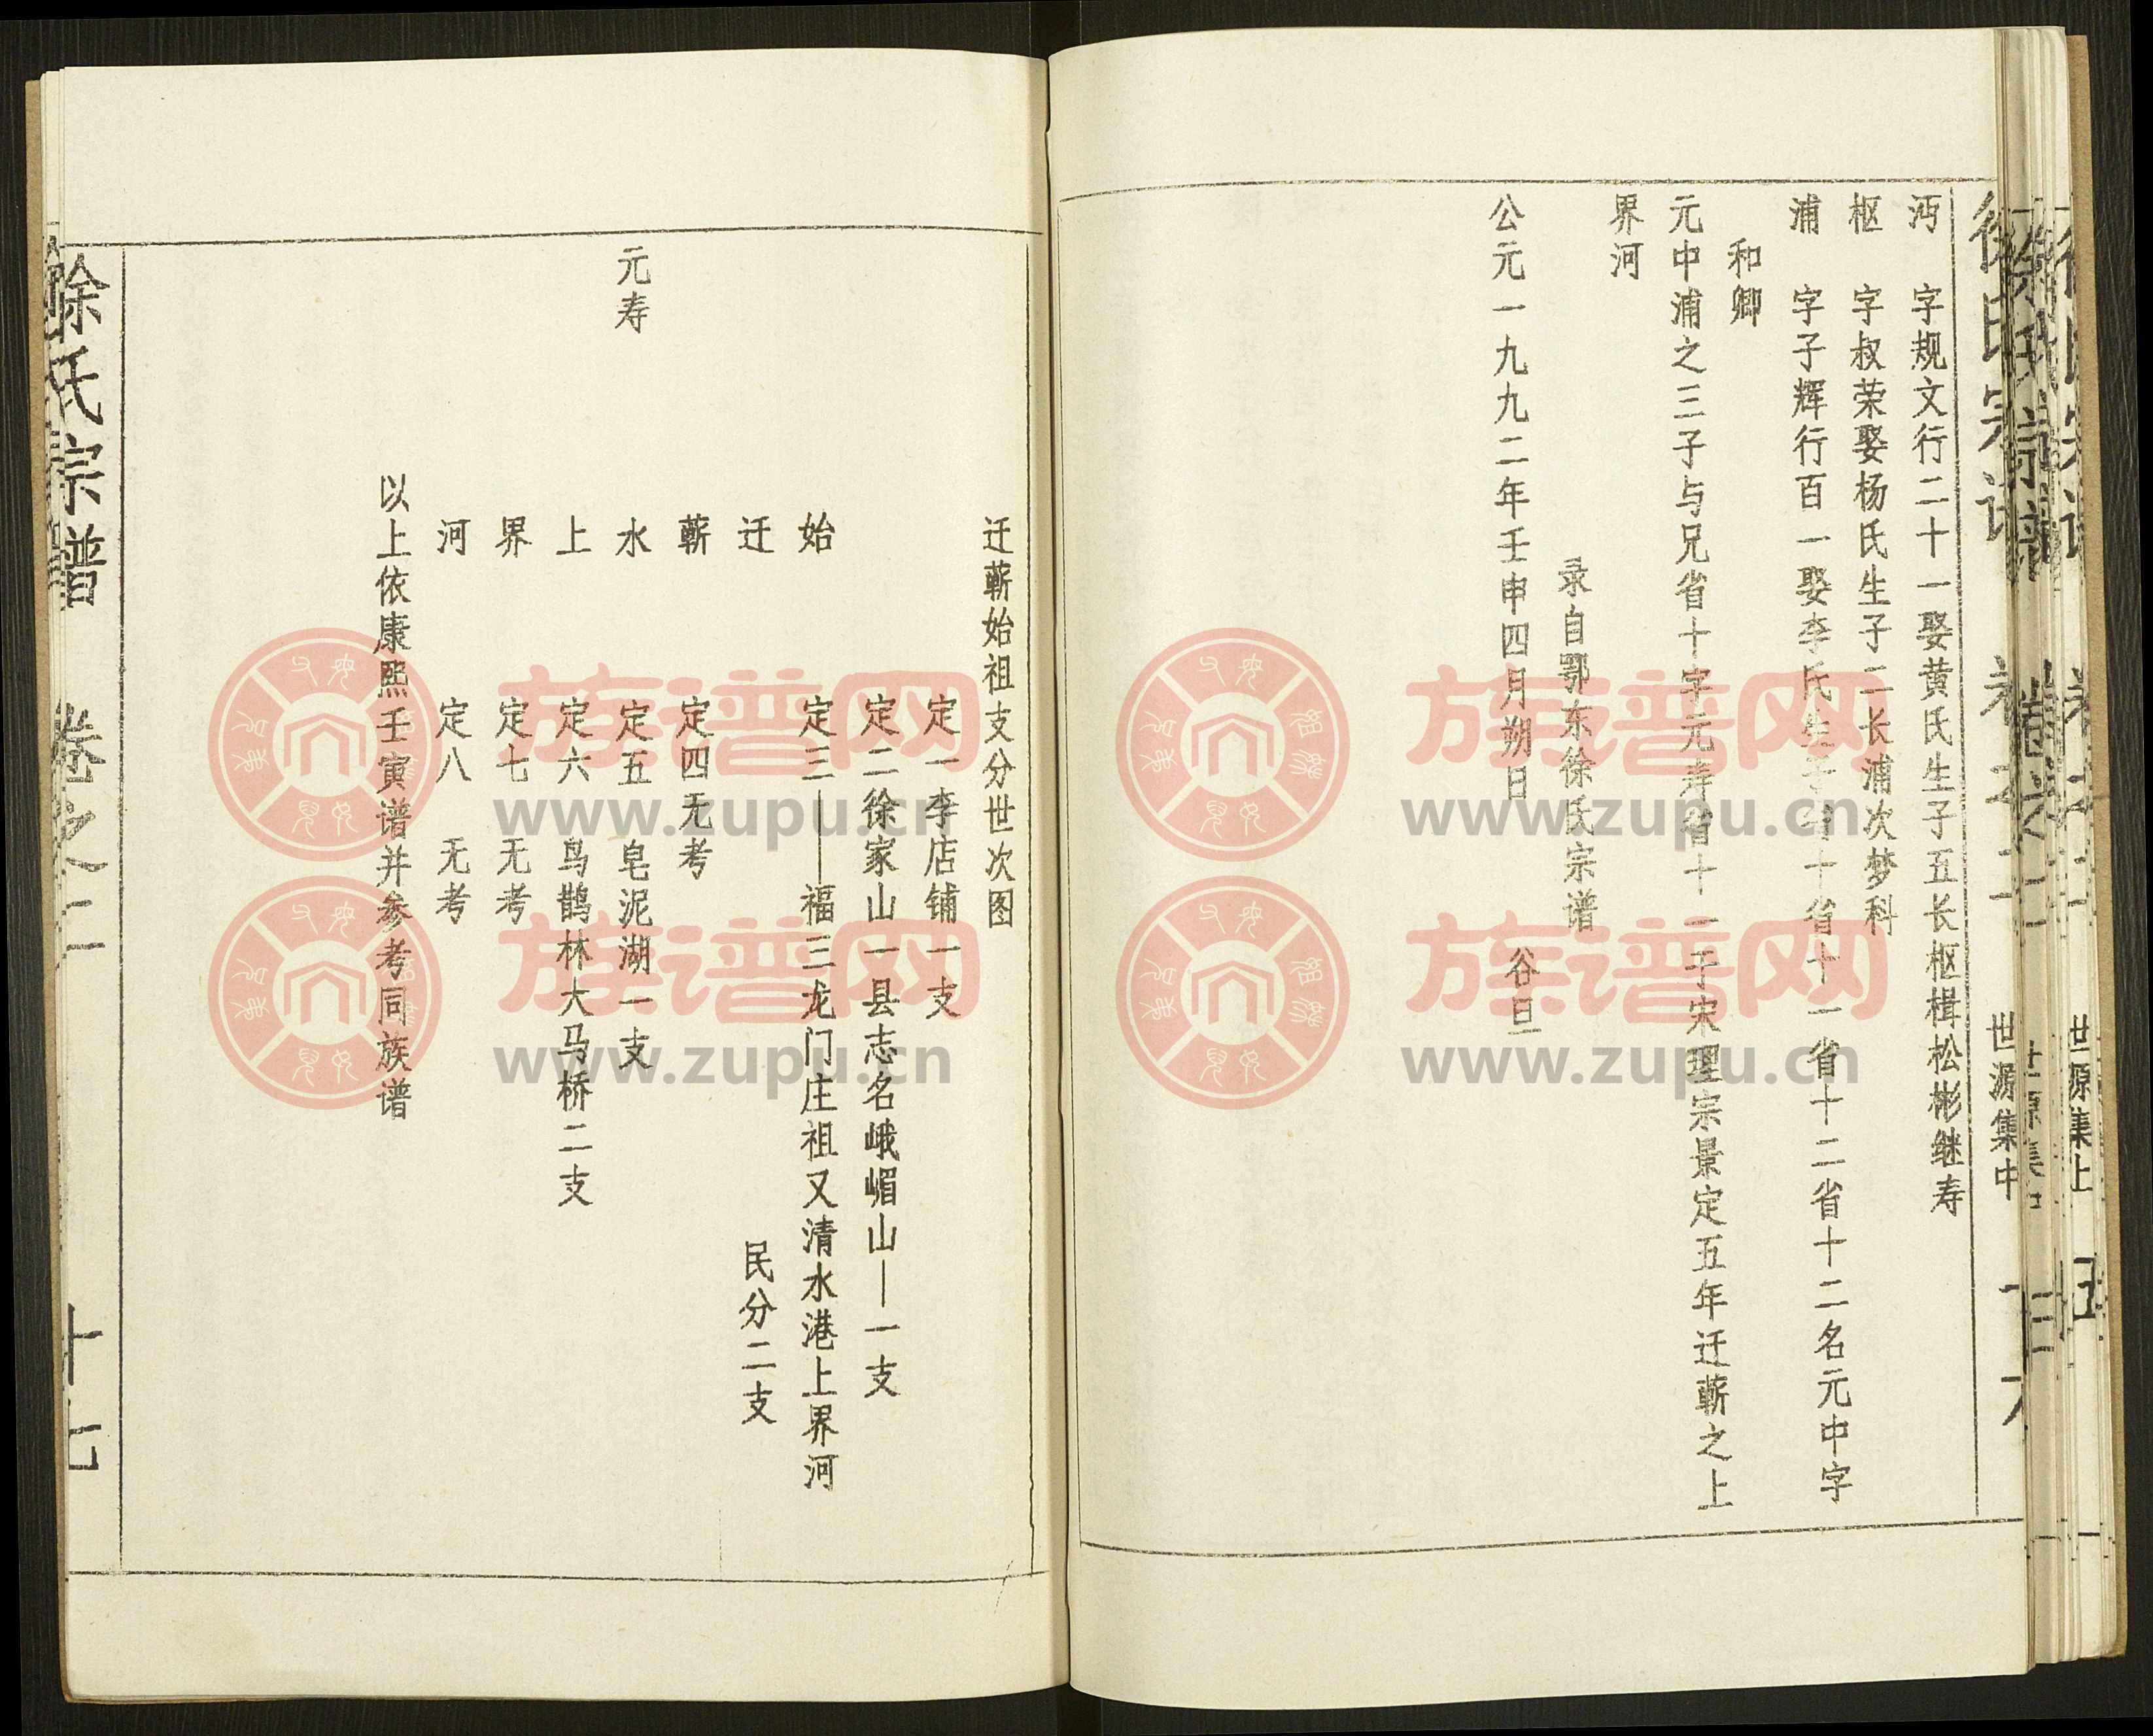 徐氏宗谱 卷之二 世源集中 十六
沔 字规文行二十一娶黄氏生子五长枢楫松彬继寿
枢 字叔荣娶杨氏生子二长浦次梦科
浦 字子辉行百一娶李氏生 十省十一省十二省十二名元中字
和卿
元中浦之三子与兄省十字元寿省十一于宋理宗景定五年迁蕲之上
界河
录自鄂东徐氏宗谱
公元一九九二年壬申四月朔日 谷旦
迁蕲始祖支分世次图
定一李店铺一支
定二徐家山一县志名峨嵋山—一支
始 定三——福三龙门庄祖又清水港上界河
迁 民分二支
蕲 定四无考
元寿 水 定五 皂泥湖一支
上 定六 鸟鹊林大马桥二支
界 定七 无考
河 定八 无考
以上依康熙壬寅谱并参考同族谱
徐氏宗谱 卷之二 十七
世源集上 五
族谱网
www.zupu.cn
族谱网
www.zupu.cn
族谱网
www.zupu.cn
族谱网
www.zupu.cn